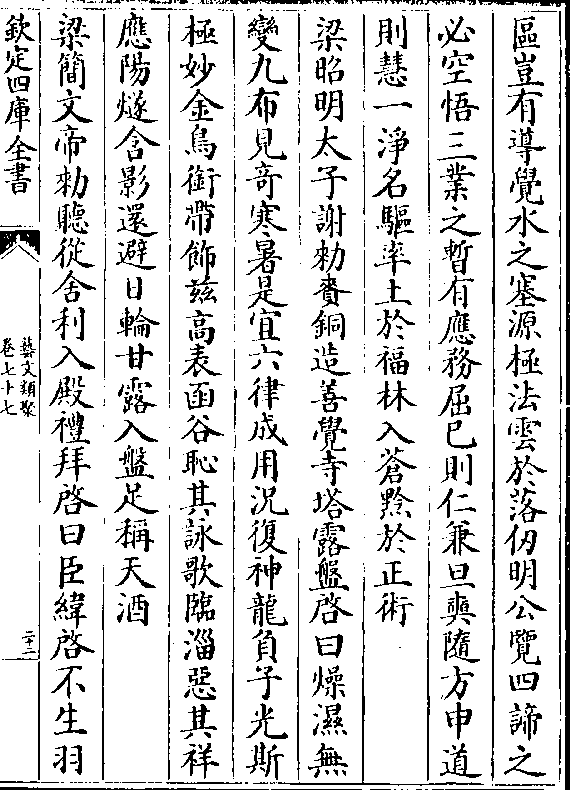 區豈有導覺水之塞源極法雲於落仞明公覽四諦之
必空悟三業之暫有應務屈己則仁兼旦奭隨方申道
則慧一淨名驅率土於福林入蒼黔於正術
梁昭明太子謝勑賚銅造善覺寺塔露盤啓曰燥濕無
變九布見奇寒暑是宜六律成用況復神龍負子光斯
極妙金鳥銜帶飾兹高表函谷恥其詠歌臨淄惡其祥
應陽燧含影還避日輪甘露入盤足稱天酒
梁簡文帝勑聽從舍利入殿禮拜啓曰臣緯啓不生羽
欽定四庫全書
藝文類聚
卷七十七
二十二